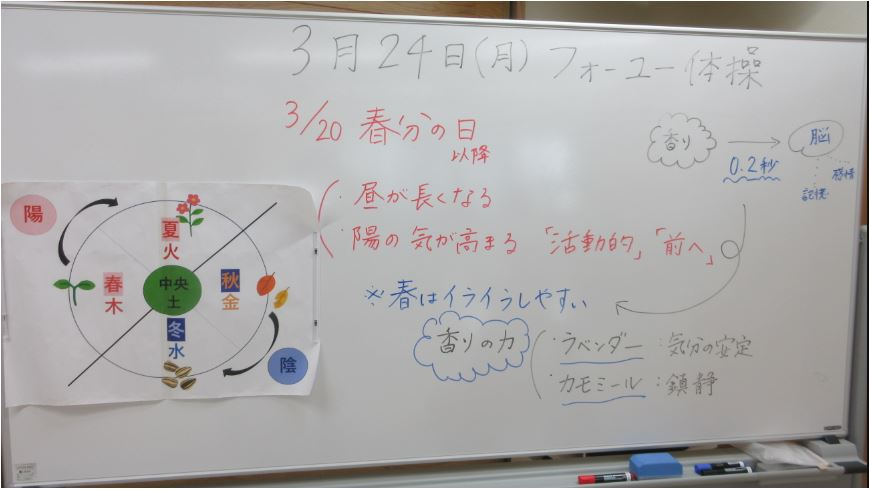 3月24日(月) フォーユー体操
3/20 春分の日
以降
・昼が長くなる
・陽の気が高まる 「活動的」「前へ」
※春はイライラしやすい
香りの力
ラベンダー：気分の安定
カモミール：鎮静
香り
0.2秒
脳
感情
記憶
陽
夏
火
春
木
中央
土
秋
金
冬
水
陰